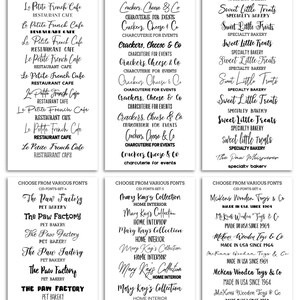 Le Petite French Cafe
RESTAURANT CAFE
Le Petite French Cafe
RESTAURANT CAFE
Le Petite French Cafe
RESTAURANT CAFE
Le Petite French Cafe
RESTAURANT CAFE
Le Petite French Cafe
RESTAURANT CAFE
Le Petite French Cafe
RESTAURANT CAFE
Le Petite French Cafe
RESTAURANT CAFE
Le Petite French Cafe
RESTAURANT CAFE
Crackers, Cheese & Co
CHARCUTERIE FOR EVENTS
Crackers, Cheese & Co
CHARCUTERIE FOR EVENTS
Crackers, Cheese & Co
CHARCUTERIE FOR EVENTS
Crackers, Cheese & Co
CHARCUTERIE FOR EVENTS
Crackers, Cheese & Co
CHARCUTERIE FOR EVENTS
Crackers, Cheese & Co
CHARCUTERIE FOR EVENTS
Crackers, Cheese & Co
CHARCUTERIE FOR EVENTS
Crackers, Cheese & Co
charcuterie for events
Sweet Little Treats
SPECIALTY BAKERY
Sweet Little Treats
SPECIALTY BAKERY
Sweet Little Treats
SPECIALTY BAKERY
Sweet Little Treats
SPECIALTY BAKERY
Sweet Little Treats
SPECIALTY BAKERY
Sweet Little Treats
SPECIALTY BAKERY
Sweet little treats
SPECIALTY BAKERY
The Paw Whisperer
specialty bakery
CHOOSE FROM VARIOUS FONTS
The Paw Factory
PET BAKERY
The Paw Factory
PET BAKERY
The Paw Factory
PET BAKERY
The Paw Factory
PET BAKERY
The Paw Factory
PET BAKERY
THE PAW FACTORY
PET BAKERY
CHOOSE FROM VARIOUS FONTS
Mary Kay's Collection
HOME INTERIOR
Mary Kay's Collection
HOME INTERIOR
Mary Kay's Collection
HOME INTERIOR
Mary Kay's Collection
HOME INTERIOR
Mary Kay's Collection
HOME INTERIOR
Mary Kay's Collection
CHOOSE FROM VARIOUS FONTS
McKees Wooden Toys & Co
MADE IN USA SINCE 1964
McKees Wooden Toys & Co
MADE IN USA SINCE 1964
McKees Wooden Toys & Co
MADE IN USA SINCE 1964
McKees Wooden Toys & Co
MADE IN USA SINCE 1964
McKees Wooden Toys & Co
MADE IN USA SINCE 1964
McKees Wooden Toys & Co